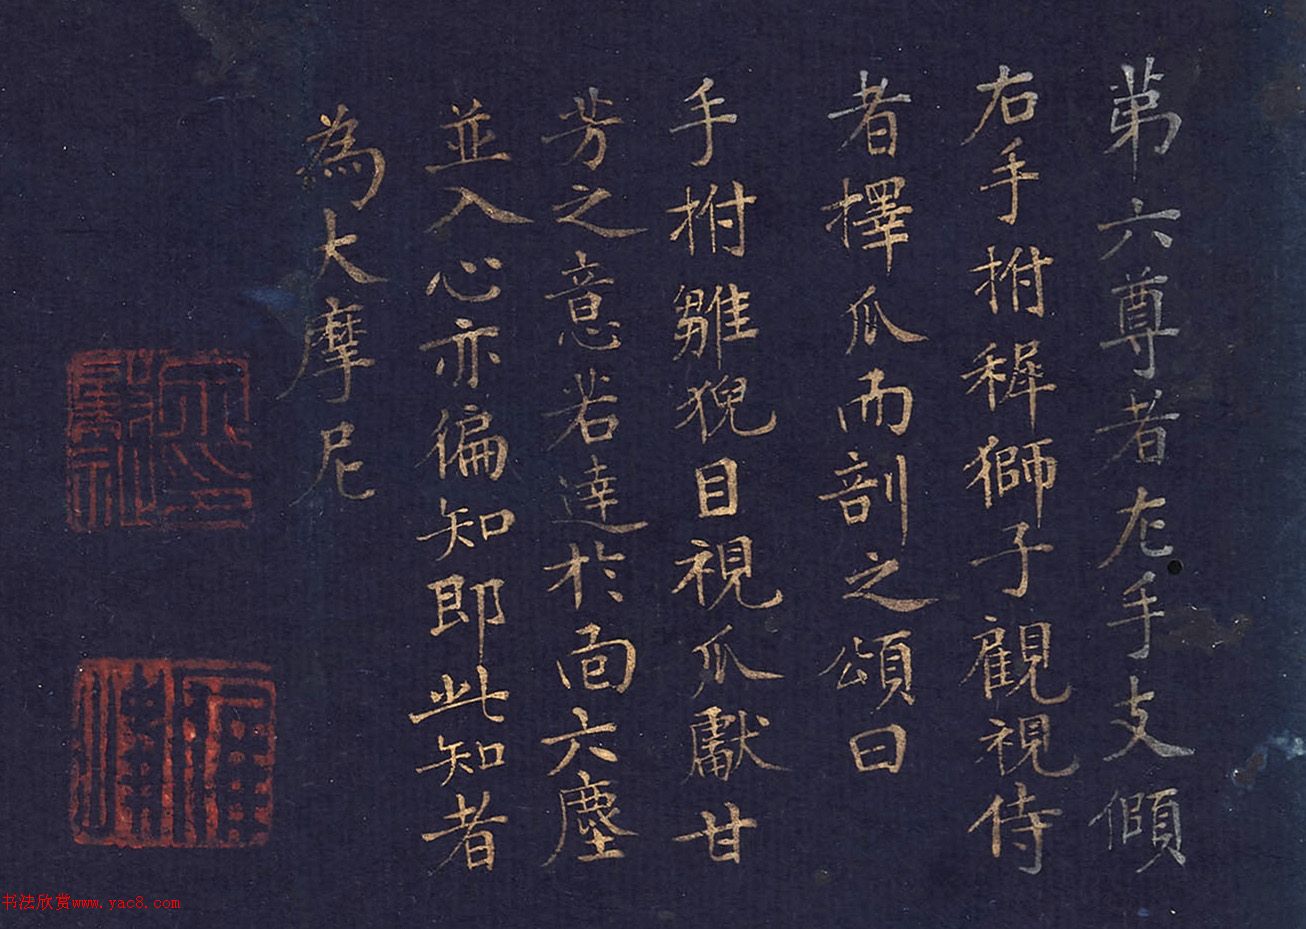 苐六尊者左手支傾
右手拊稺獅子觀視侍
者擇瓜而剖之頌曰
手拊雛猊目視瓜獻甘
芳之意若達於面六塵
並入心亦偏知即此知者
為大摩尼
书法欣赏www.yac8.com